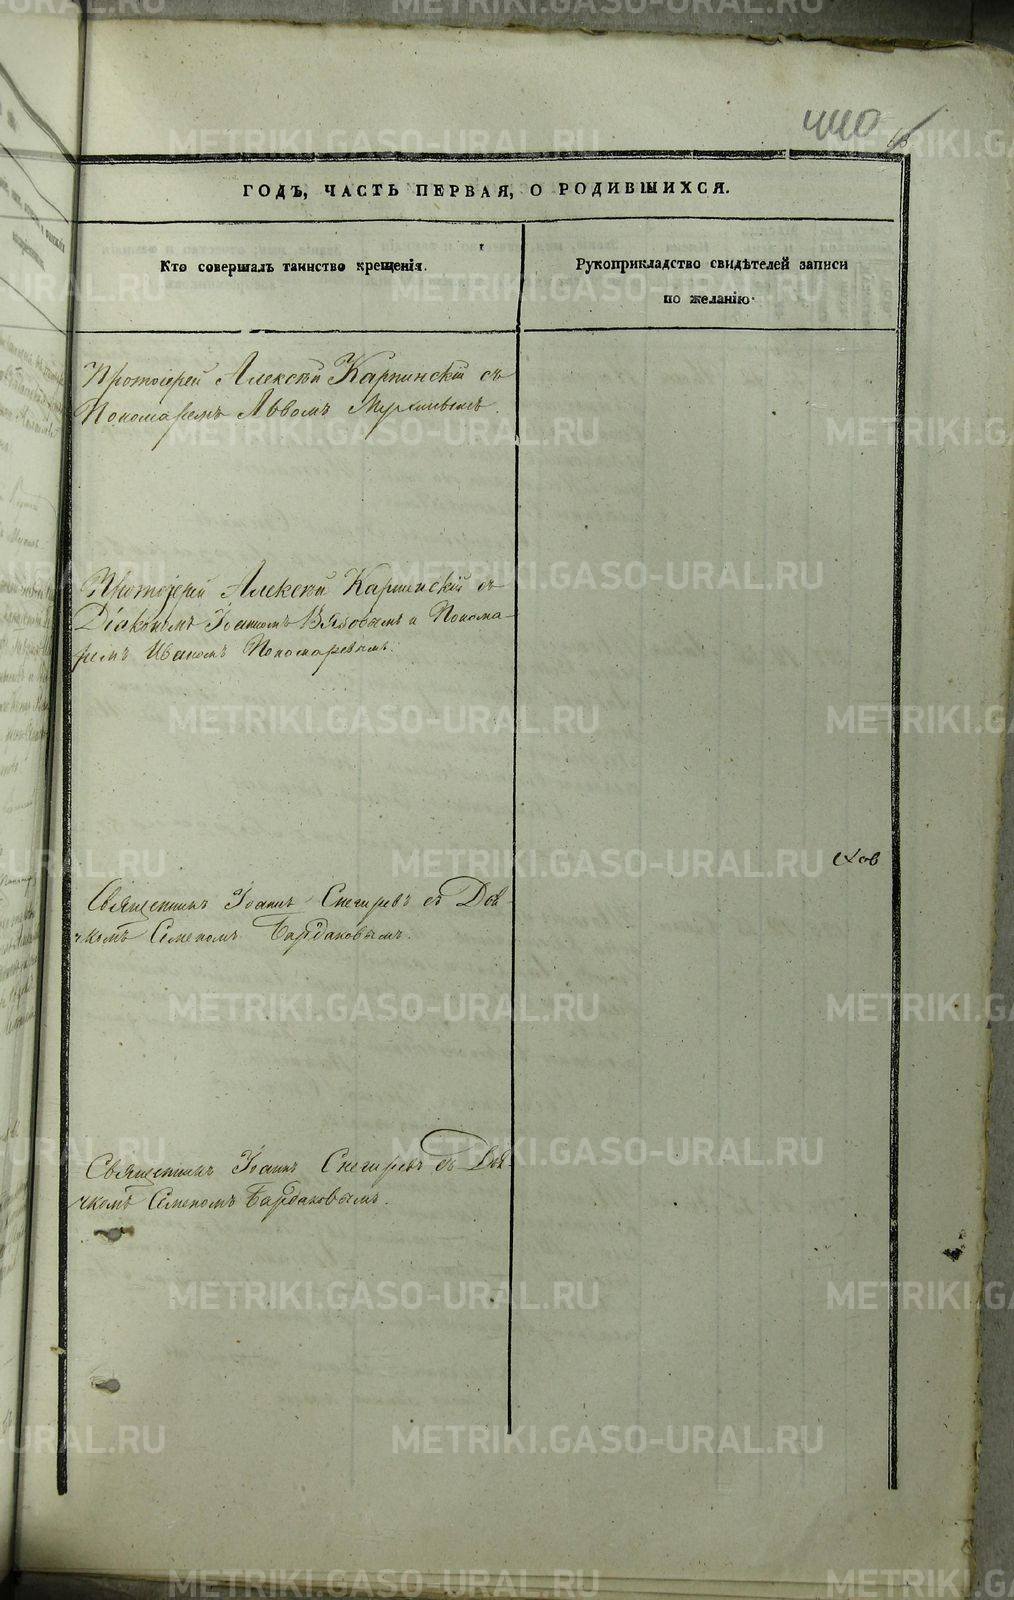 440
ГОДЪ, ЧАСТЬ ПЕРВАЯ, О РОДИВШИХСЯ.
Кто совершалъ таинство крещенія.
Рукоприкладство свидѣтелей записи
по желанію.
Протоіерей Алексѣй Карпинскій съ
Пономаремъ Львомъ
Протоіерей Алексѣй Карпинскій съ
Діакономъ Іоанномъ и Понома-
ремъ Иваномъ Пономаревымъ.
Священникъ Іоаннъ Снегиревъ съ Дья-
чкомъ Семеномъ Бардаковымъ.
Священникъ Іоаннъ Снегиревъ съ Дья-
чкомъ Семеномъ Бардаковымъ.
METRIKI.GASO-URAL.RU